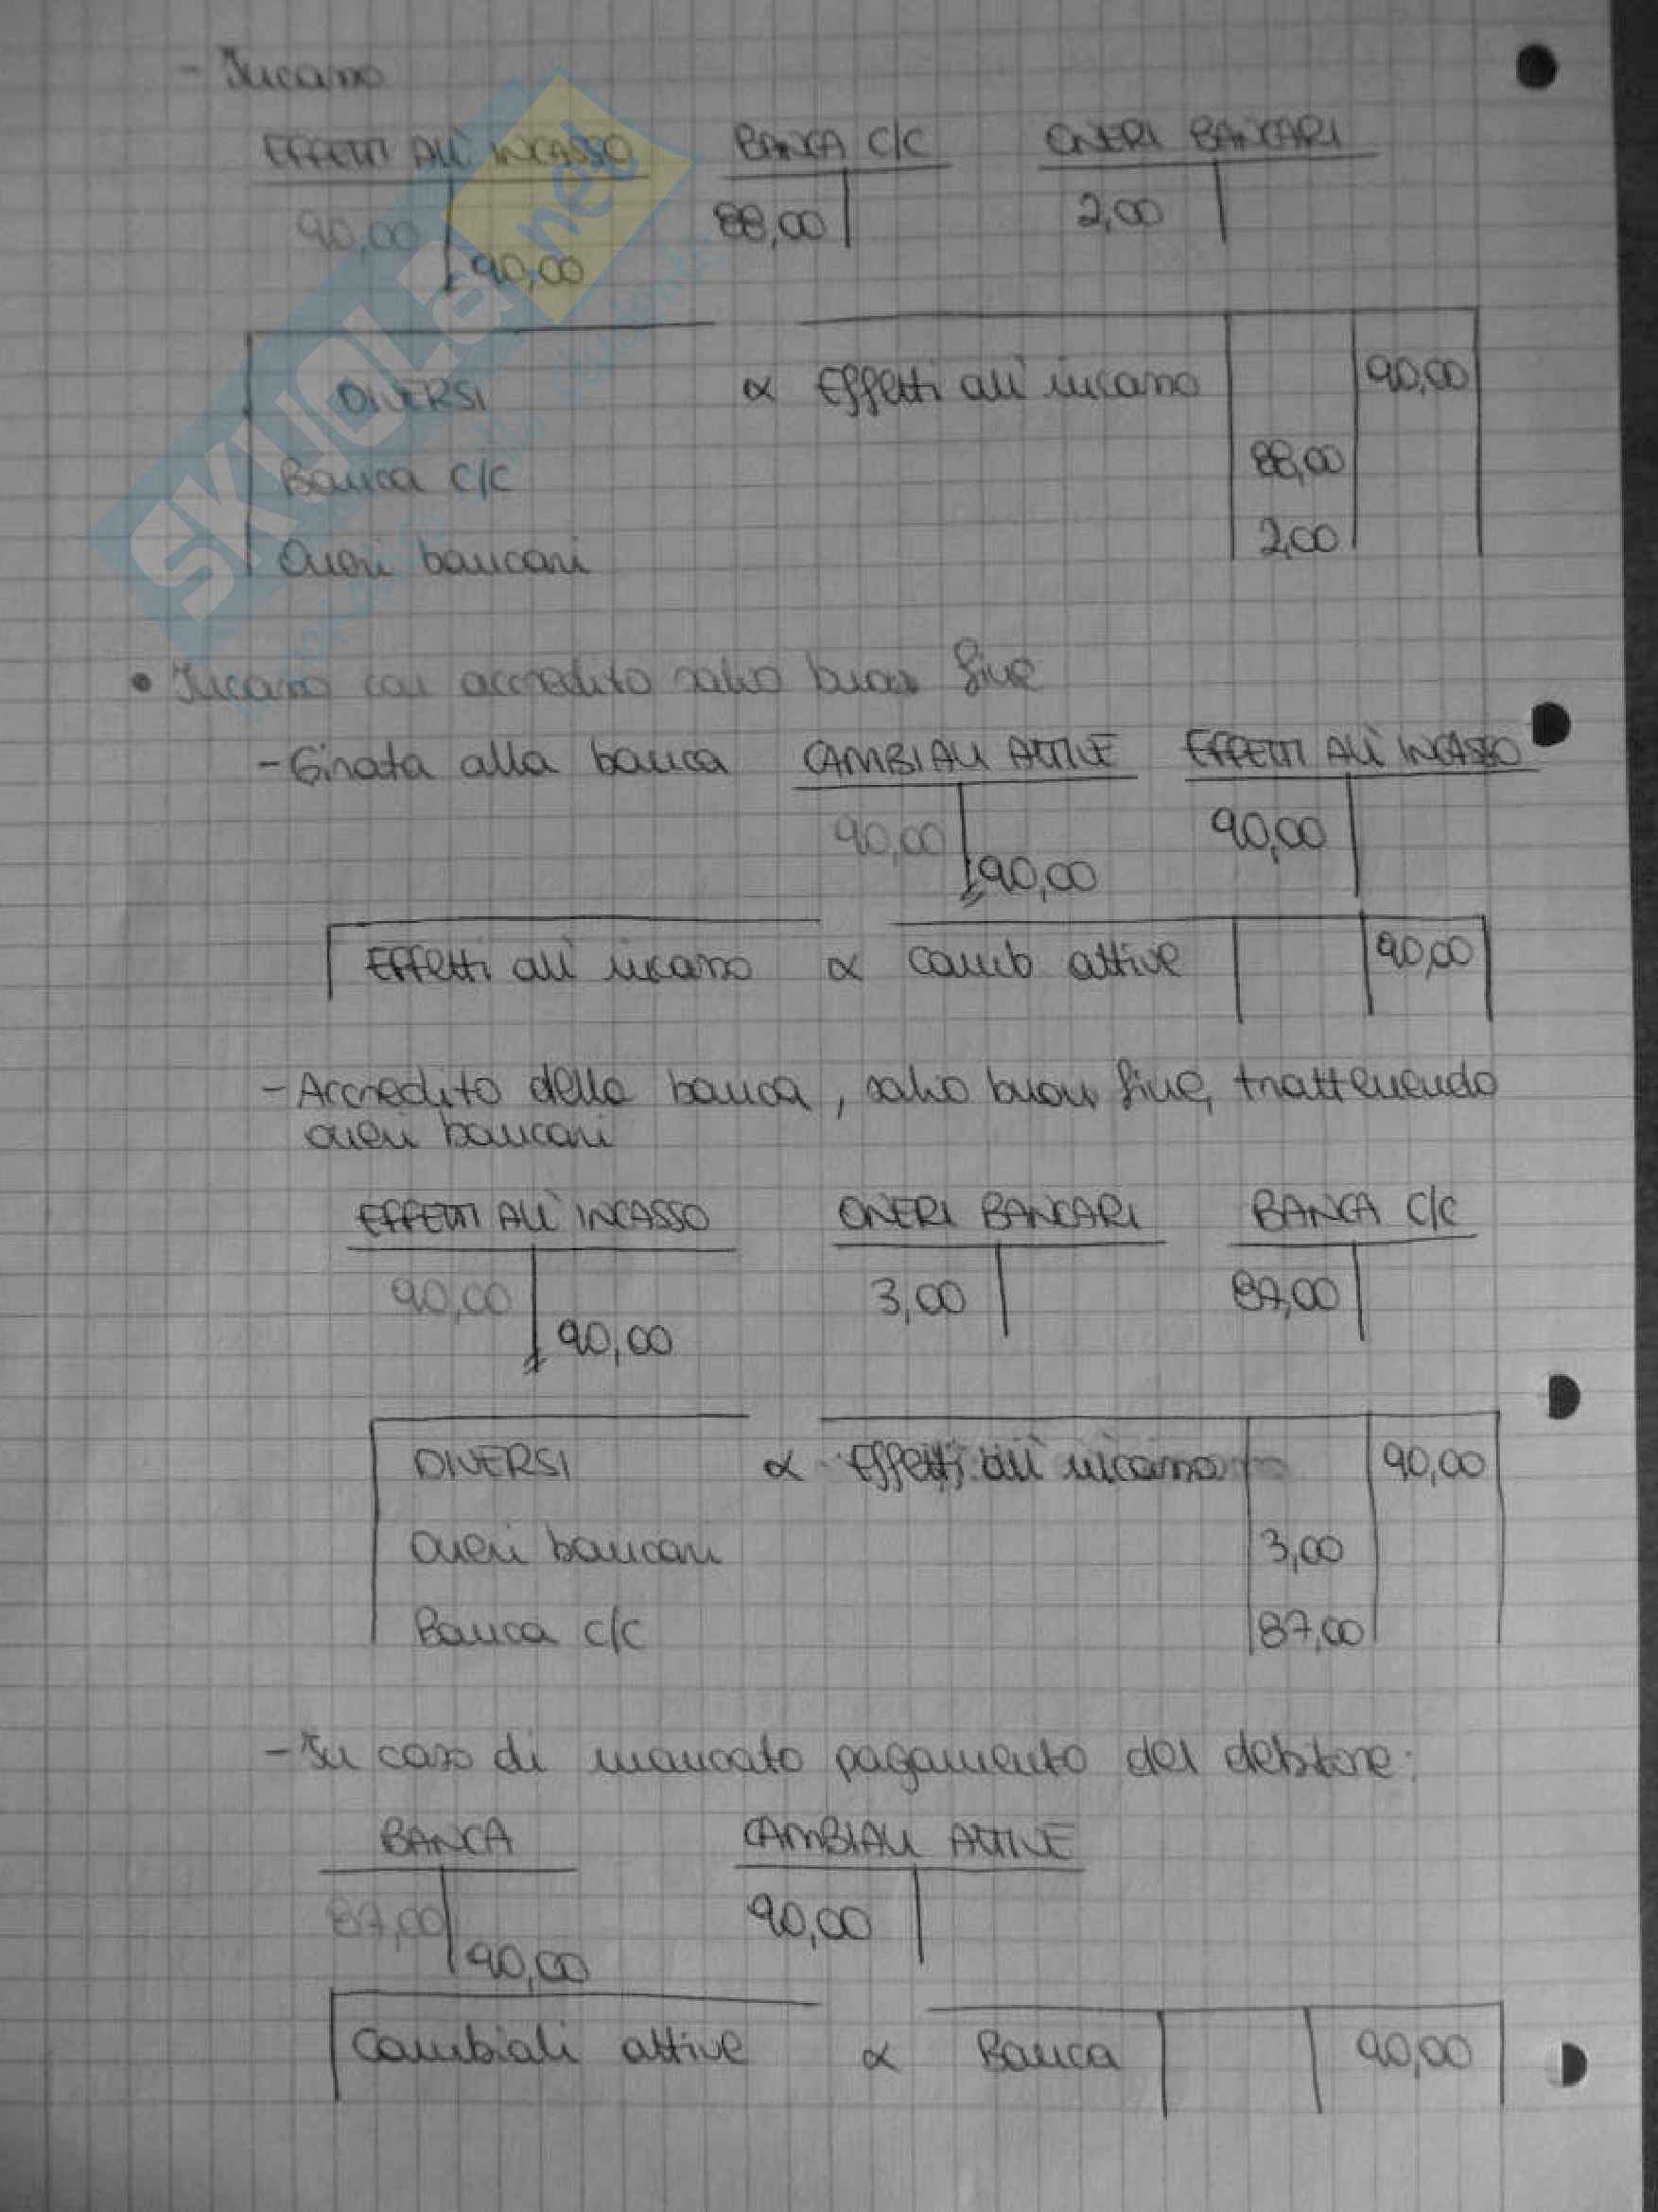 - Incasso
EFFETTI ALL' INCASSO BANCA C/C ONERI BANCARI
90,00 88,00 2,00
90,00
DIVERSI a Effetti all' incasso 90,00
Banca c/c 88,00
Oneri bancari 2,00
• Incasso con accredito salvo buon fine
- Girata alla banca CAMBIALI ATTIVE EFFETTI ALL' INCASSO
90,00 90,00
90,00
Effetti all' incasso a camb attive 90,00
- Accredito della banca, salvo buon fine, trattenendo
oneri bancari
EFFETTI ALL' INCASSO ONERI BANCARI BANCA C/C
90,00 3,00 87,00
90,00
DIVERSI a Effetti all' incasso 90,00
Oneri bancari 3,00
Banca c/c 87,00
- In caso di mancato pagamento del debitore:
BANCA CAMBIALI ATTIVE
87,00 90,00
90,00
Cambiali attive a Banca 90,00
SKUOLA.net